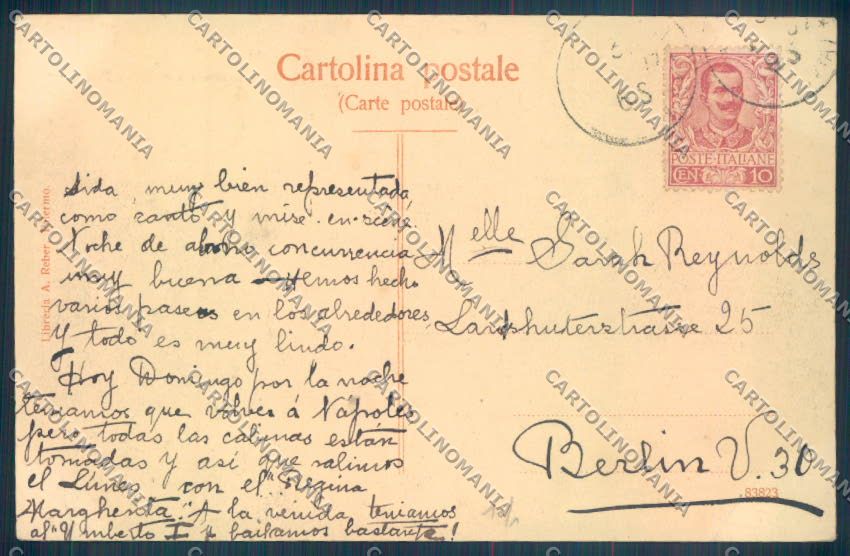 Cartolina postale
(Carte postale)
POSTE·ITALIANE
CEN 10
Aida muy bien representada
como canto y mise-en-scene
Noche de abono concurrencia
muy buena — Hemos hecho
varios paseos en los alrededores
y todo es muy lindo.
Hoy Domingo por la noche
teniamos que volver á Napoles
pero todas las cabinas estan
tomadas y así que salimos
el Lunes con el "Regina
Margherita." A la venida teniamos
al "Umberto I" y bailamos bastante!
Melle Sarah Reynolds
Landshuterstrasse 25
Berlin V. 30
83823
Libreria A. Reber Palermo.
CARTOLINOMANIA